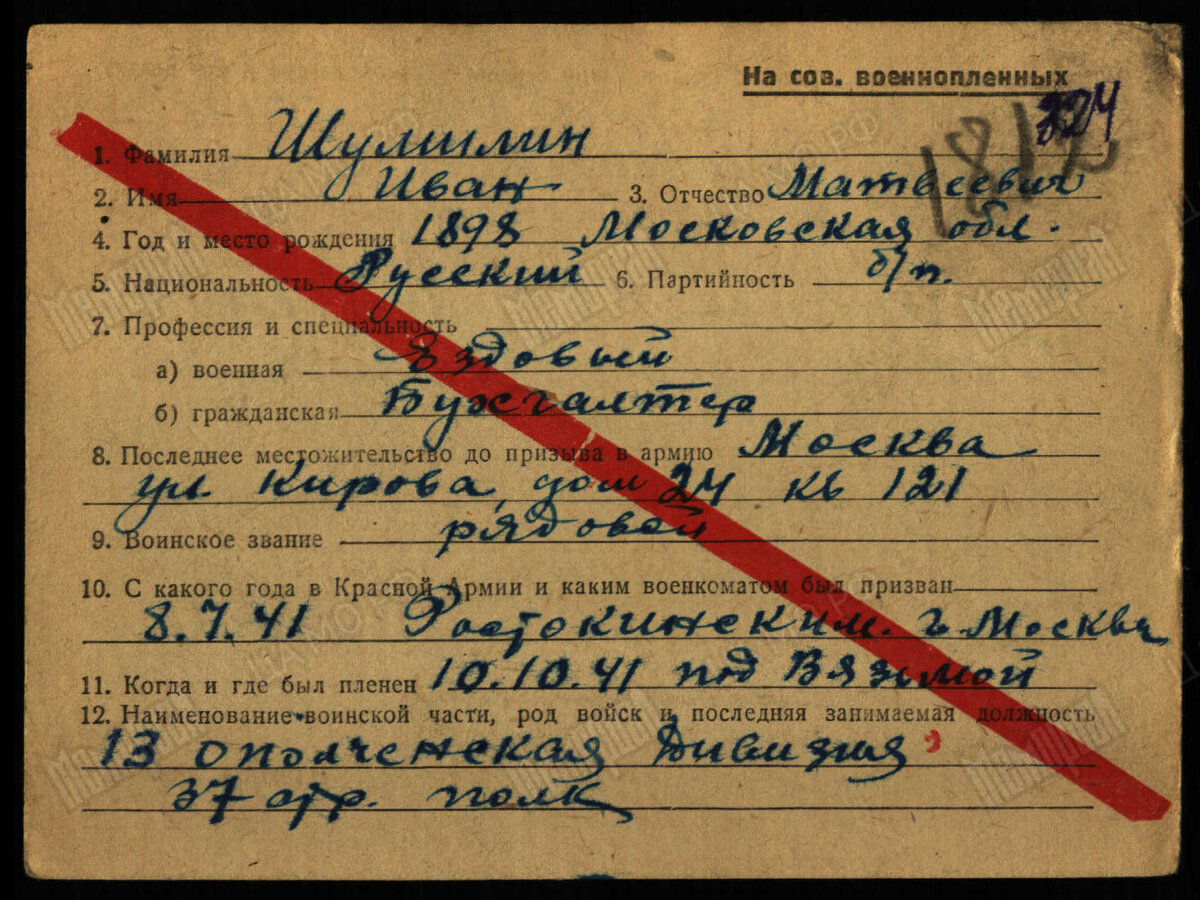 На сов. военнопленных
224
1812
1. Фамилия Шумилин
2. Имя Иван 3. Отчество Матвеевич
4. Год и место рождения 1898 Московская обл.
5. Национальность Русский 6. Партийность б/п.
7. Профессия и специальность
а) военная Ездовый
б) гражданская Бухгалтер
8. Последнее местожительство до призыва в армию Москва
ул. Кирова, дом 24 кв 121
9. Воинское звание рядовой
10. С какого года в Красной Армии и каким военкоматом был призван
8.7.41 Ростокинским. г. Москвы
11. Когда и где был пленен 10.10.41 под Вязьмой
12. Наименование воинской части, род войск и последняя занимаемая должность
13 ополченская Дивизия
37 стр. полк